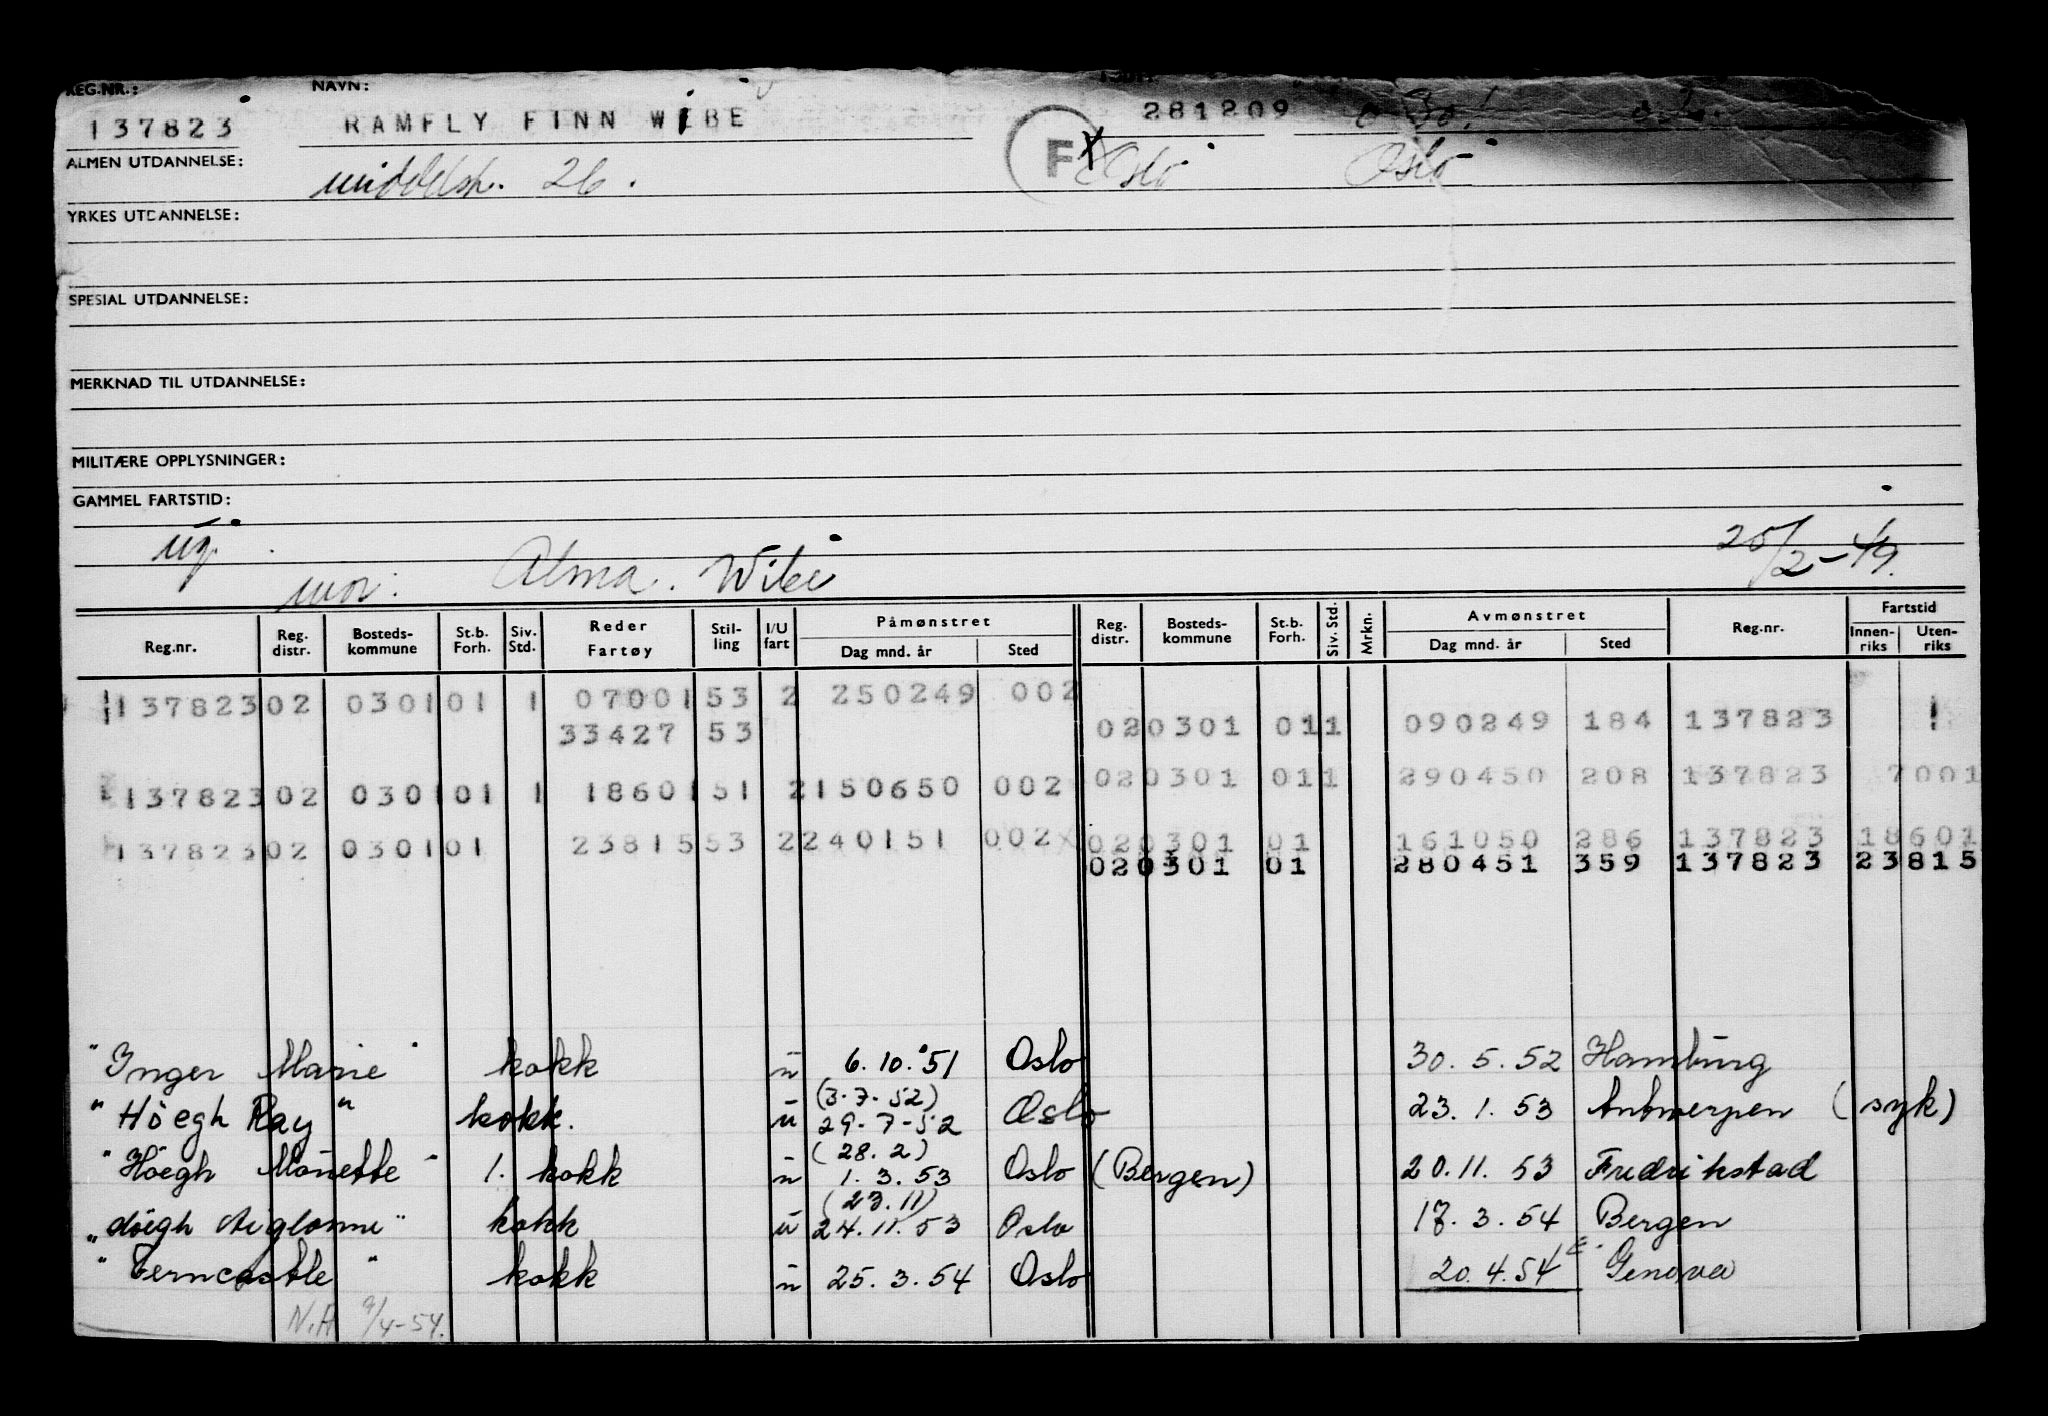 REG.NR.: NAVN:
137823 RAMFLY FINN WIBE 281209
ALMEN UTDANNELSE: middelsk. 26. F Oslo Oslo
YRKES UTDANNELSE:
SPESIAL UTDANNELSE:
MERKNAD TIL UTDANNELSE:
MILITÆRE OPPLYSNINGER:
GAMMEL FARTSTID:
ug. 25/2-49.
mor: Alma. Wibe
Reg.nr. Reg. distr. Bosteds-kommune St.b. Forh. Siv. Std. Reder Fartøy Stil-ling I/U fart Påmønstret Dag mnd. år Sted Reg. distr. Bosteds-kommune St.b. Forh. Siv. Std. Mrkn. Avmønstret Dag mnd. år Sted Reg.nr. Fartstid Innen-riks Uten-riks
137823 02 0301 01 1 07001 53 2 250249 002
33427 53 02 0301 01 1 090249 184 137823 1
02 0301 01 1 290450 208 137823 7001
137823 02 0301 01 1 18601 51 2 150650 002
137823 02 0301 01 23815 53 2 240151 002 02 0301 01 161050 286 137823 18601
02 0301 01 280451 359 137823 23815
"Inger Marie" kokk u 6.10.51 Oslo 30.5.52 Hamburg
(3.7.52)
"Höegh Ray" kokk. u 29-7-52 Oslo 23.1.53 Antwerpen (syk)
(28.2)
"Höegh Monette" 1. kokk u 1.3.53 Oslo (Bergen) 20.11.53 Fredrikstad
(23.11)
"Höegh Aiglonne" kokk u 24.11.53 Oslo 17.3.54 Bergen
"Terncastle" kokk u 25.3.54 Oslo 20.4.54 Genova
N.A 9/4-54.